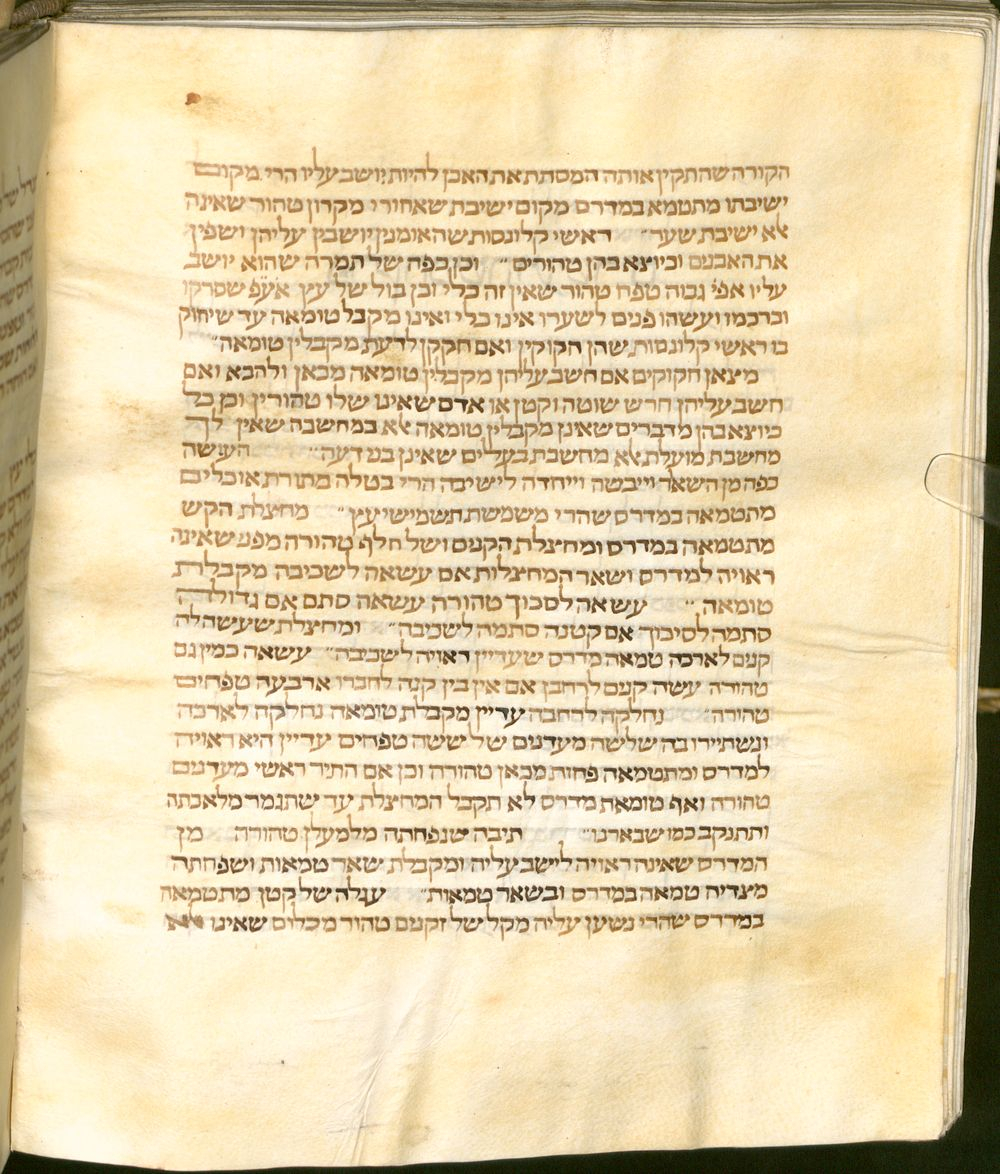 הקורה שהתקין אותה המסתת את האבן להיות יושב עליו הרי מקום
ישיבתו מתטמא במדרס מקום ישיבת שאחורי מקרון טהור שאינה
אלא ישיבת שער ראשי קלונסות שהאומנין יושבין עליהן ושפין
את האבנים וכיוצא בהן טהורים וכן כפה של תמרה שהוא יושב
עליו אפי גבוה טפח טהור שאין זה כלי וכן בול של עץ אעפ שסרקו
וכרכמו ועשהו פנים לשערו אינו כלי ואינו מקבל טומאה עד שיחוק
בו ראשי קלונסות שהן חקוקין ואם חקקן לדעת מקבלין טומאה
מצאן חקוקים אם חשב עליהן מקבלין טומאה מכאן ולהבא ואם
חשב עליהן חרש שוטה וקטן או אדם שאינו שלו טהורין וכן כל
כיוצא בהן מדברים שאינן מקבלין טומאה אלא במחשבה שאין לך
מחשבת מועלת אלא מחשבת בעלים שאינן בני דעה העושה
כפה מן השאר וייבשה וייחדה לישיבה הרי בטלה מתורת אוכלים
מתטמאה במדרס שהרי משמשת תשמישי עץ מחצלת הקש
מתטמאה במדרס ומחצלת הקנים ושל חלף טהורה מפני שאינה
ראויה למדרס ושאר המחצלות אם עשאה לשכיבה מקבלת
טומאה עשאה לסכוך טהורה עשאה סתם אם גדולה
סתמה לסיכוך אם קטנה סתמה לשכיבה ומחצלת שעשה לה
קנים לארכה טמאה מדרס שעדיין ראויה לשכיבה עשאה כמין גם
טהורה עשה קנים לרחבן אם אין בין קנה לחברו ארבעה טפחים
טהורה נחלקה לרחבה עדיין מקבלת טומאה נחלקה לארכה
ונשתיירו בה שלישה מעדנים של ששה טפחים עדיין היא ראויה
למדרס ומתטמאה פחות מכאן טהורה וכן אם התיר ראשי מעדנים
טהורה ואף טומאת מדרס לא תקבל המחצלת עד שתגמר מלאכתה
ותתנקב כמו שבארנו תיבה שנפחתה מלמעלן טהורה מן
המדרס שאינה ראויה לישב עליה ומקבלת שאר טמאות ושפחתה
מצדיה טמאה במדרס ובשאר טמאות עגלה של קטן מתטמאה
במדרס שהרי נשען עליה מקל של זקנים טהור מכלום שאינו אלא